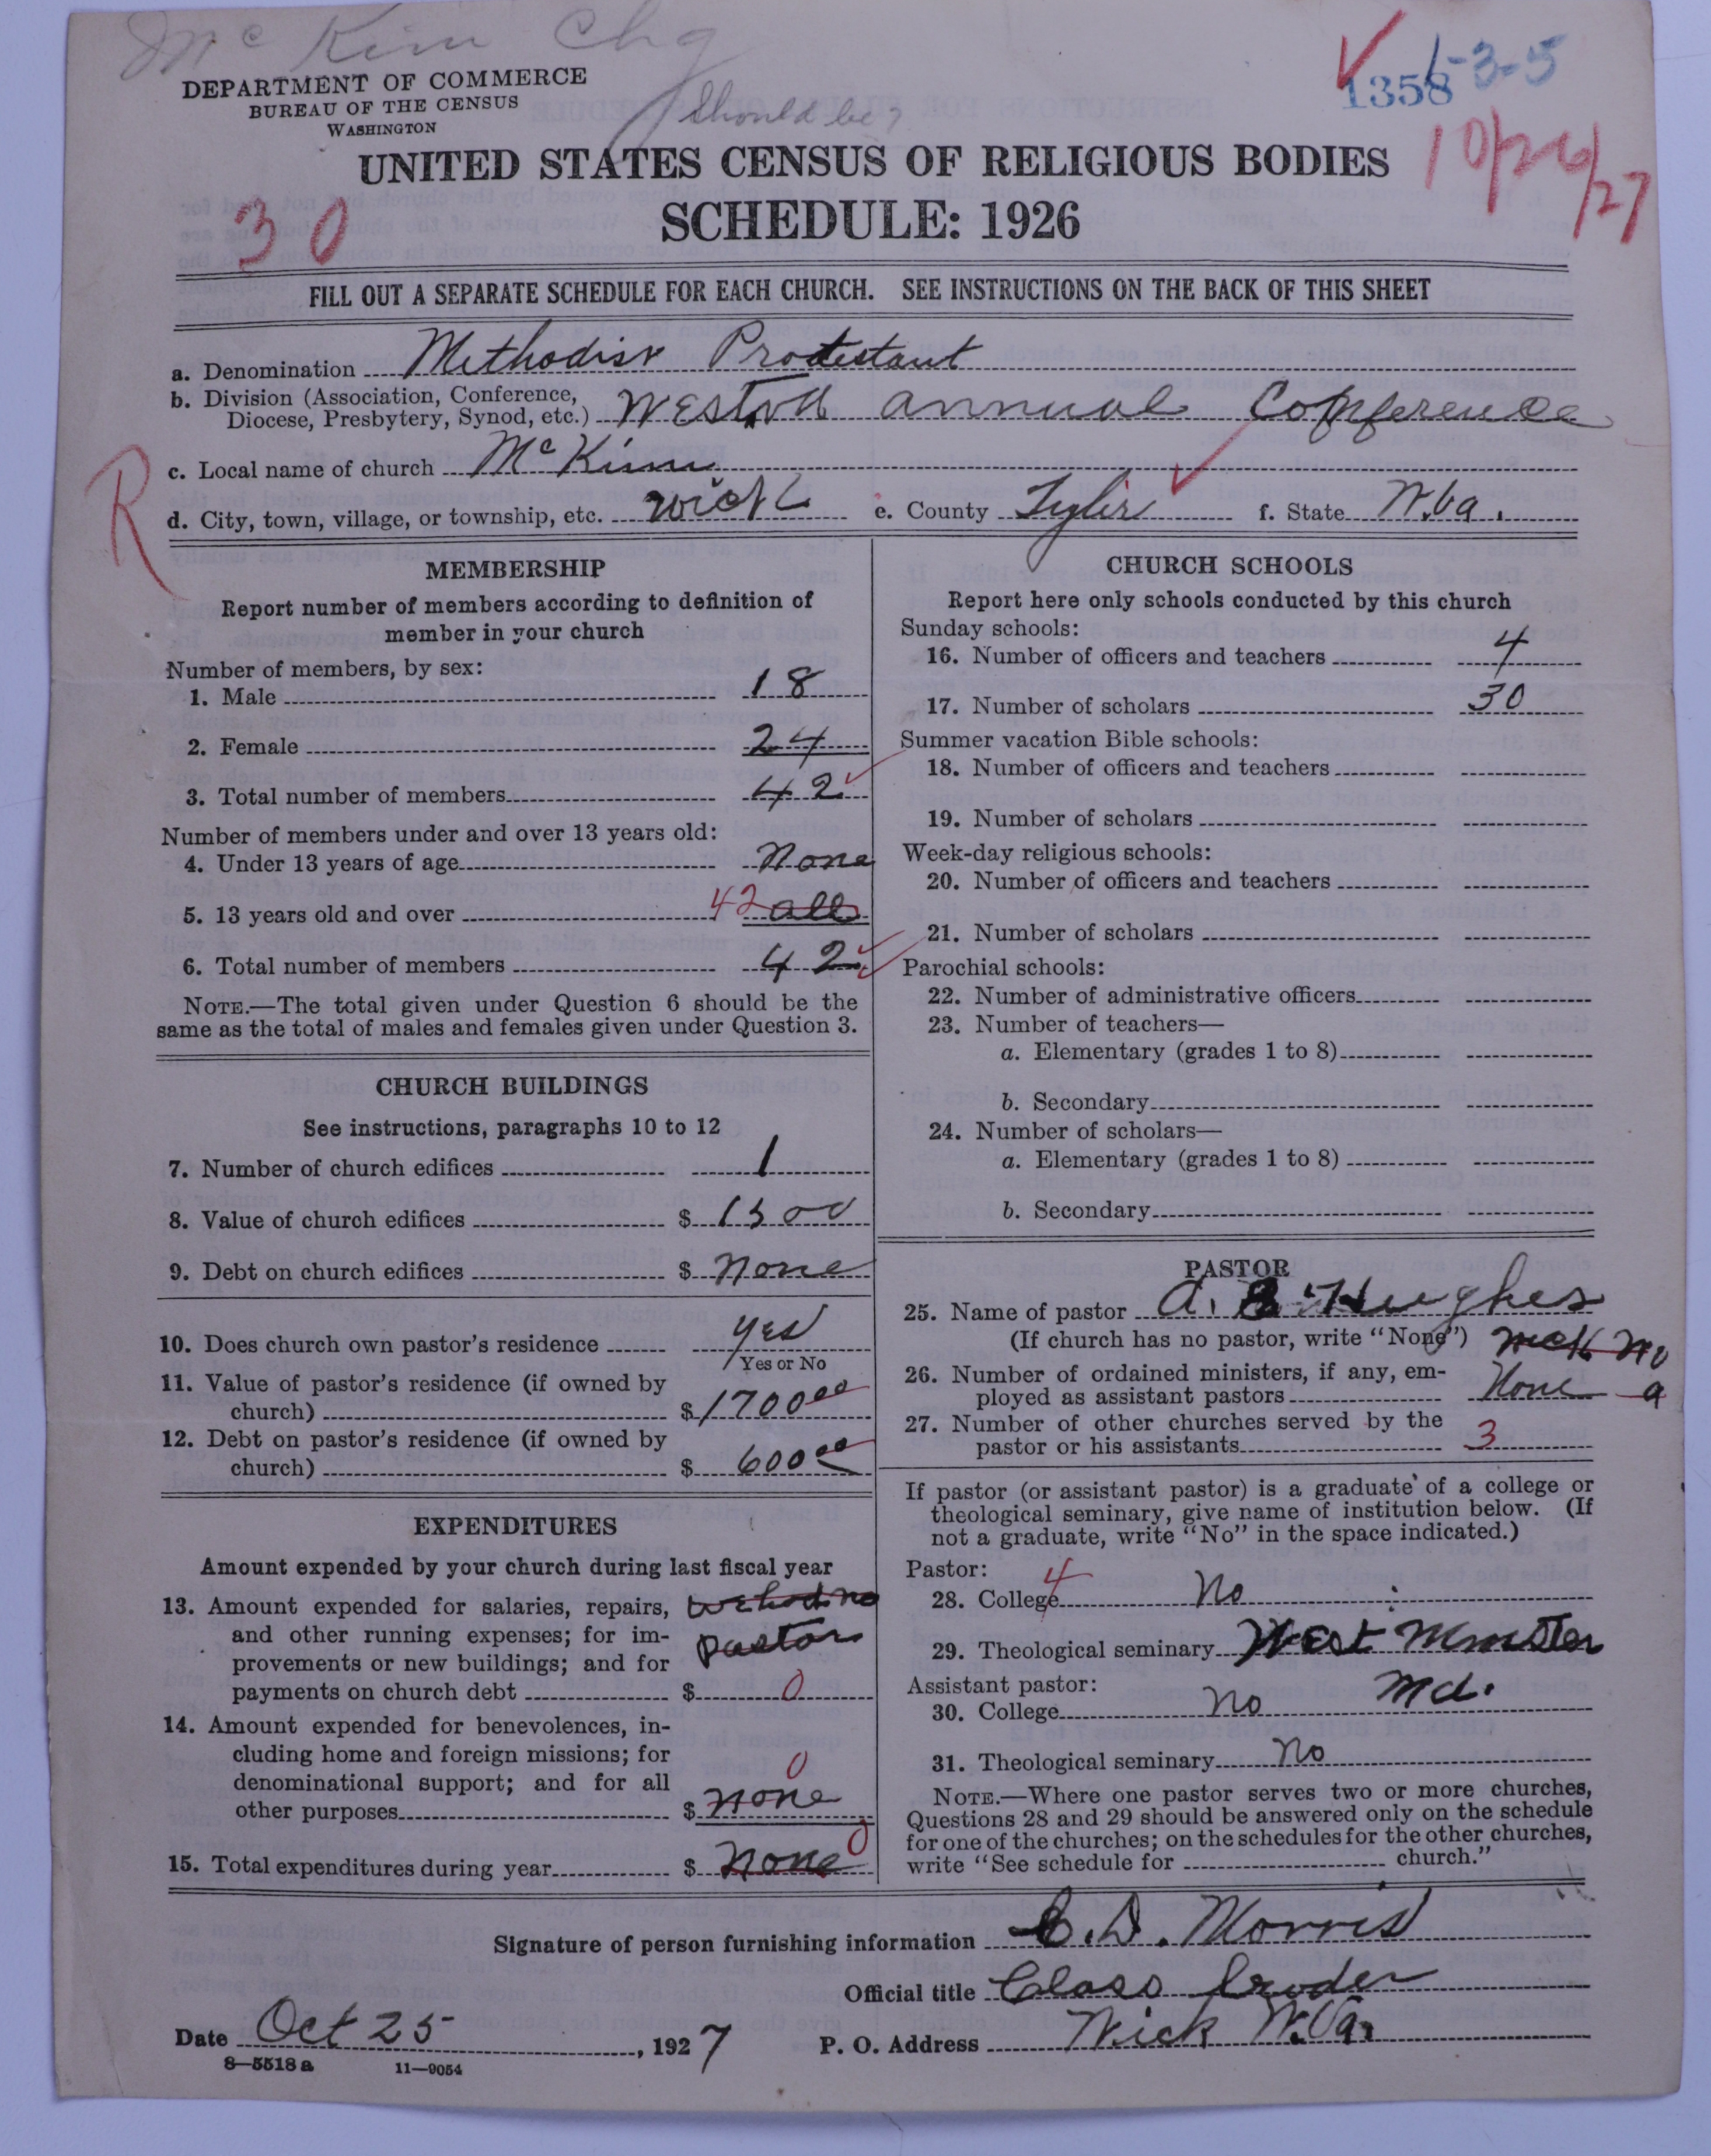 Mc Kim Chg
DEPARTMENT OF COMMERCE
BUREAU OF THE CENSUS
WASHINGTON
should be?
1358 1-3-5
10/26/27
UNITED STATES CENSUS OF RELIGIOUS BODIES
30
SCHEDULE: 1926
FILL OUT A SEPARATE SCHEDULE FOR EACH CHURCH. SEE INSTRUCTIONS ON THE BACK OF THIS SHEET
a. Denomination Methodist Protestant
b. Division (Association, Conference,
Diocese, Presbytery, Synod, etc.) annual Conference
R
c. Local name of church Mc Kim
d. City, town, village, or township, etc. Wick e. County Tyler f. State W.Va.
MEMBERSHIP
Report number of members according to definition of
member in your church
Number of members, by sex:
1. Male 18
2. Female 24
3. Total number of members 42
Number of members under and over 13 years old:
4. Under 13 years of age None
5. 13 years old and over 42 all
6. Total number of members 42
NOTE.—The total given under Question 6 should be the
same as the total of males and females given under Question 3.
CHURCH BUILDINGS
See instructions, paragraphs 10 to 12
7. Number of church edifices 1
8. Value of church edifices $ 1500
9. Debt on church edifices $ None
10. Does church own pastor's residence yes
Yes or No
11. Value of pastor's residence (if owned by
church) $ 1700 00
12. Debt on pastor's residence (if owned by
church) $ 600 00
EXPENDITURES
Amount expended by your church during last fiscal year
13. Amount expended for salaries, repairs, we had no
and other running expenses; for im- pastor
provements or new buildings; and for
payments on church debt $ 0
14. Amount expended for benevolences, in-
cluding home and foreign missions; for
denominational support; and for all 0
other purposes $ none
15. Total expenditures during year $ none 0
CHURCH SCHOOLS
Report here only schools conducted by this church
Sunday schools:
16. Number of officers and teachers 4
17. Number of scholars 30
Summer vacation Bible schools:
18. Number of officers and teachers
19. Number of scholars
Week-day religious schools:
20. Number of officers and teachers
21. Number of scholars
Parochial schools:
22. Number of administrative officers
23. Number of teachers—
a. Elementary (grades 1 to 8)
b. Secondary
24. Number of scholars—
a. Elementary (grades 1 to 8)
b. Secondary
PASTOR
25. Name of pastor A. B. Hughes
(If church has no pastor, write "None")
26. Number of ordained ministers, if any, em-
ployed as assistant pastors None
27. Number of other churches served by the
pastor or his assistants 3
If pastor (or assistant pastor) is a graduate of a college or
theological seminary, give name of institution below. (If
not a graduate, write "No" in the space indicated.)
Pastor: 4
28. College No
29. Theological seminary West Minster
Assistant pastor: Md.
30. College No
31. Theological seminary No
NOTE.—Where one pastor serves two or more churches,
Questions 28 and 29 should be answered only on the schedule
for one of the churches; on the schedules for the other churches,
write "See schedule for church."
Signature of person furnishing information C. D. Morris
Official title Class Leader
Date Oct 25, 1927 P. O. Address Wick W.Va.
8—5518 a 11—9054